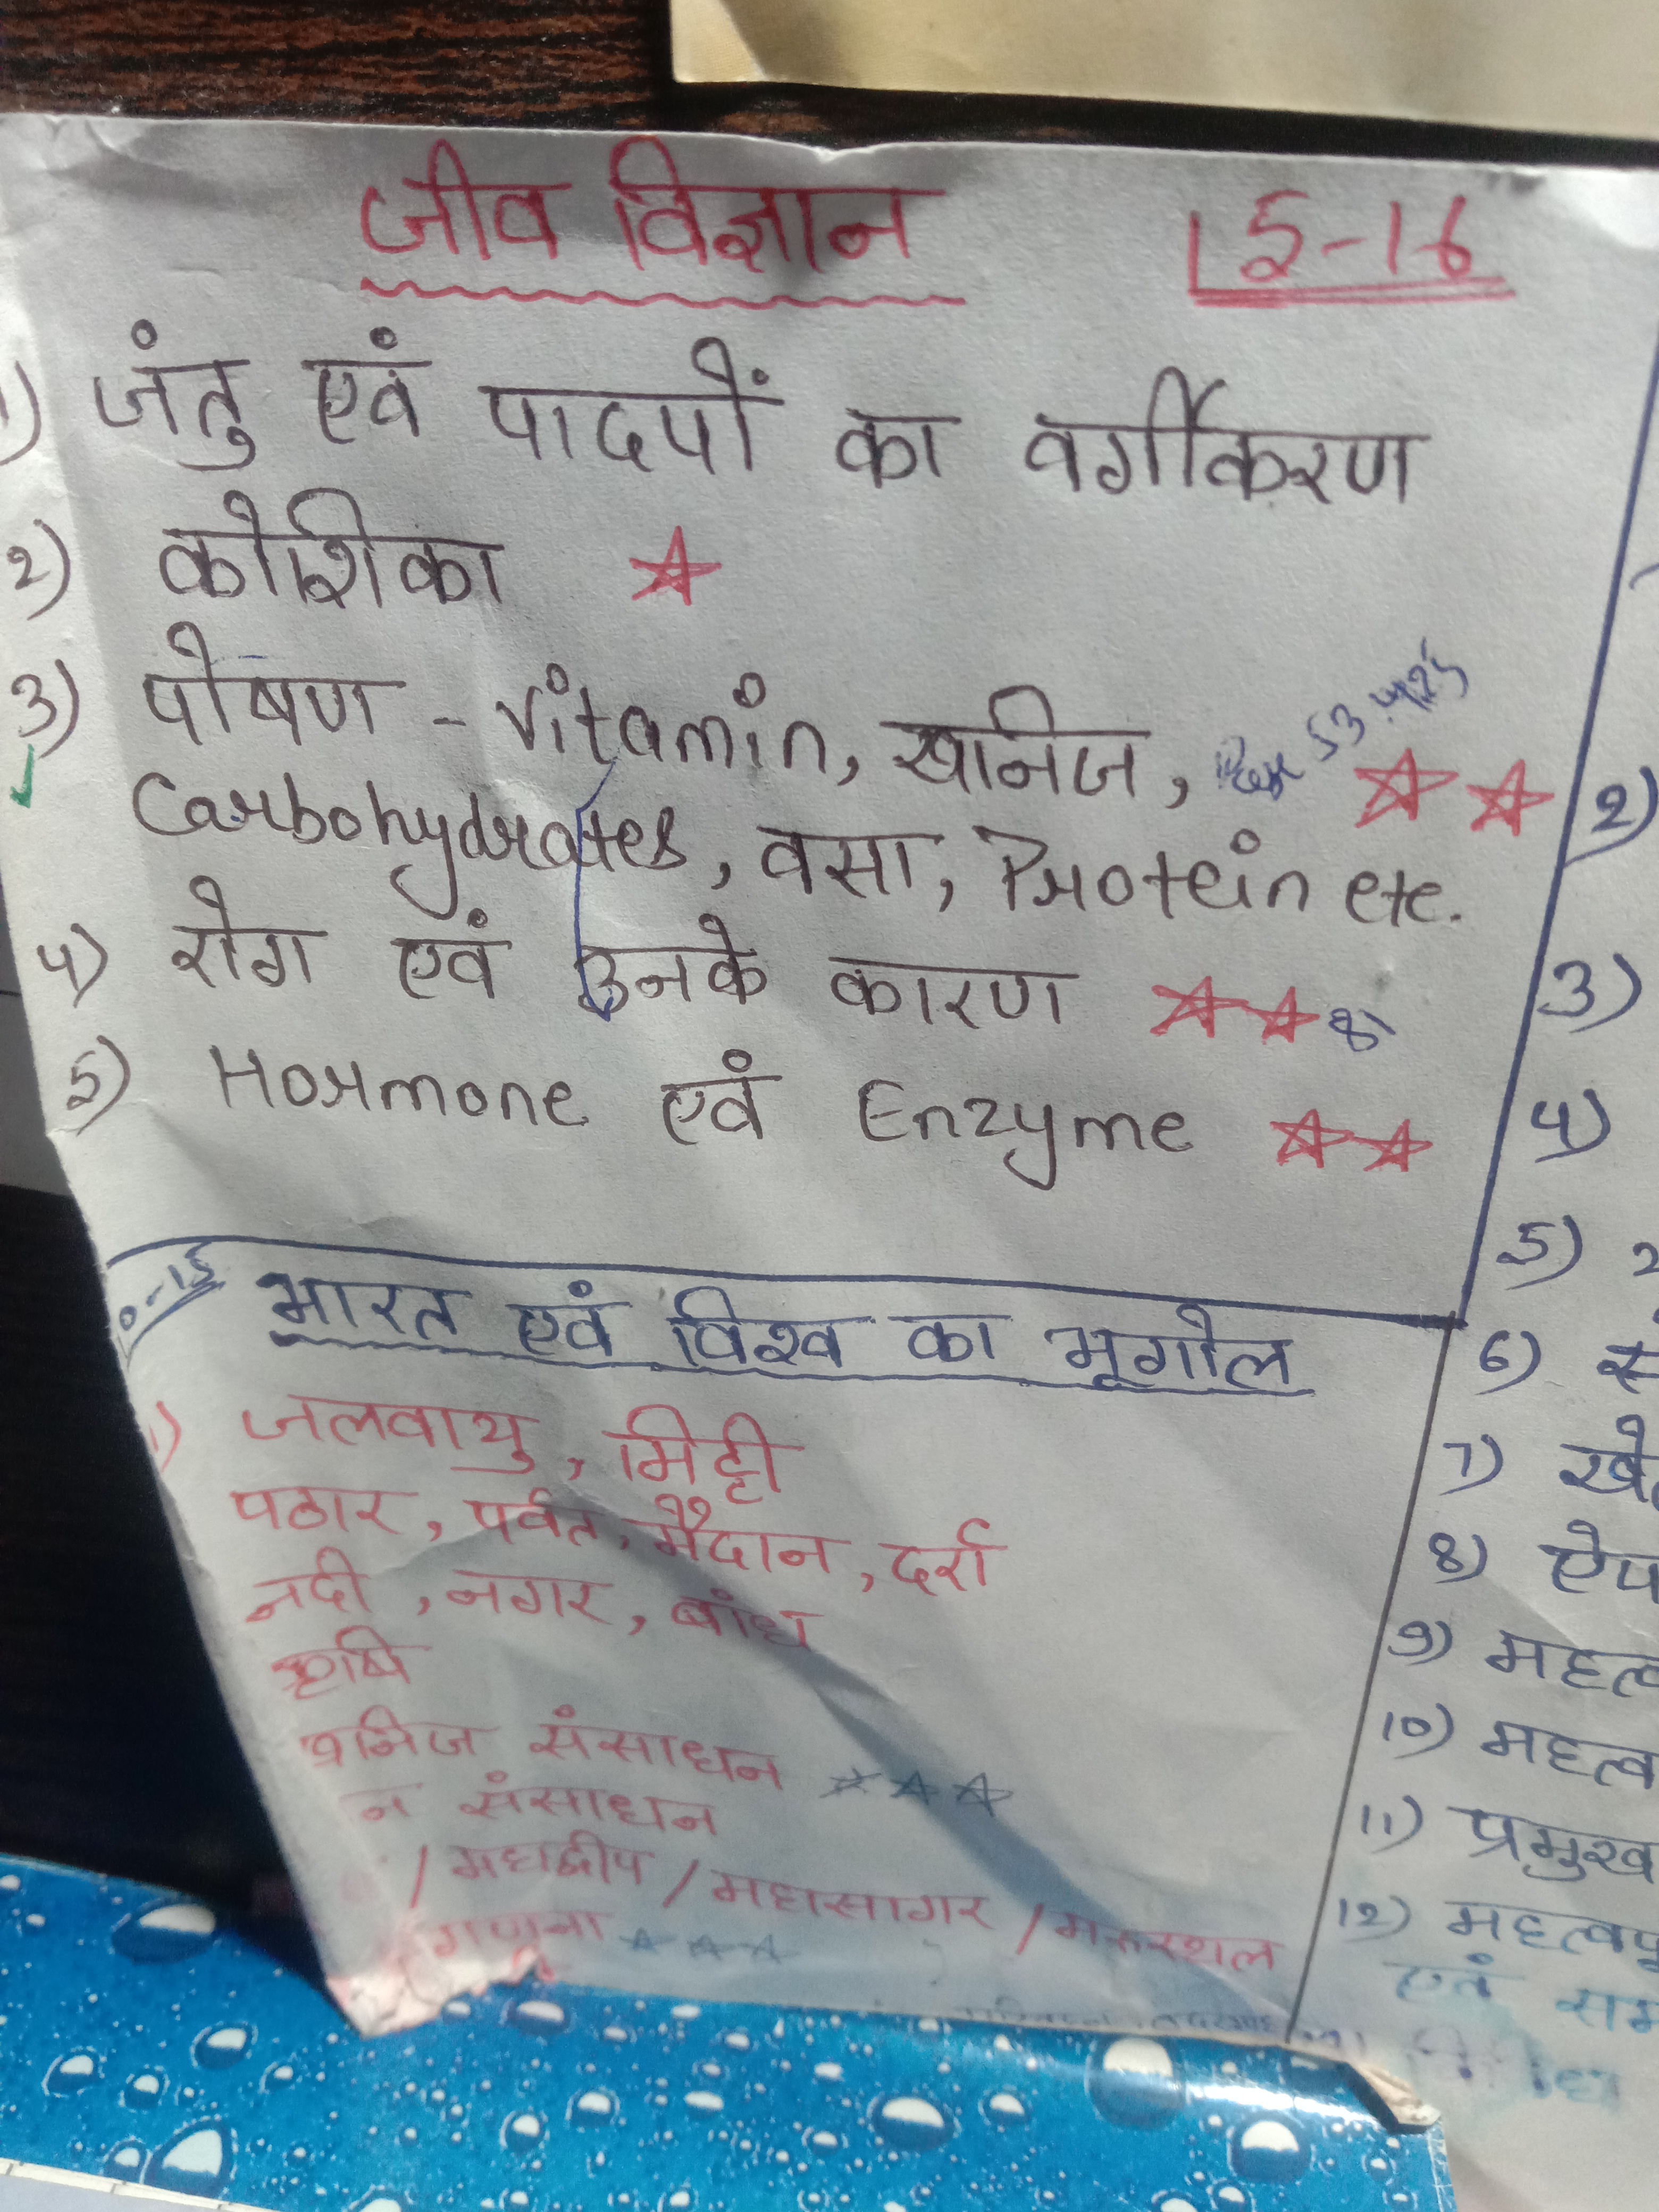 जीव विज्ञान 15-16
1) जंतु एवं पादपों का वर्गीकरण
2) कोशिका
3) पोषण - Vitamin, खनिज,
Carbohydrates, वसा, Protein etc.
4) रोग एवं उनके कारण
5) Hormone एवं Enzyme
भारत एवं विश्व का भूगोल
1) जलवायु, मिट्टी
पठार, पर्वत, मैदान, दर्रा
नदी, नगर, बांध
कृषि
खनिज संसाधन
न संसाधन
/ महाद्वीप / महासागर / मरुस्थल
गणना
2)
3)
4)
5)
6)
7)
8)
9)
10)
11) प्रमुख
12)
एवं